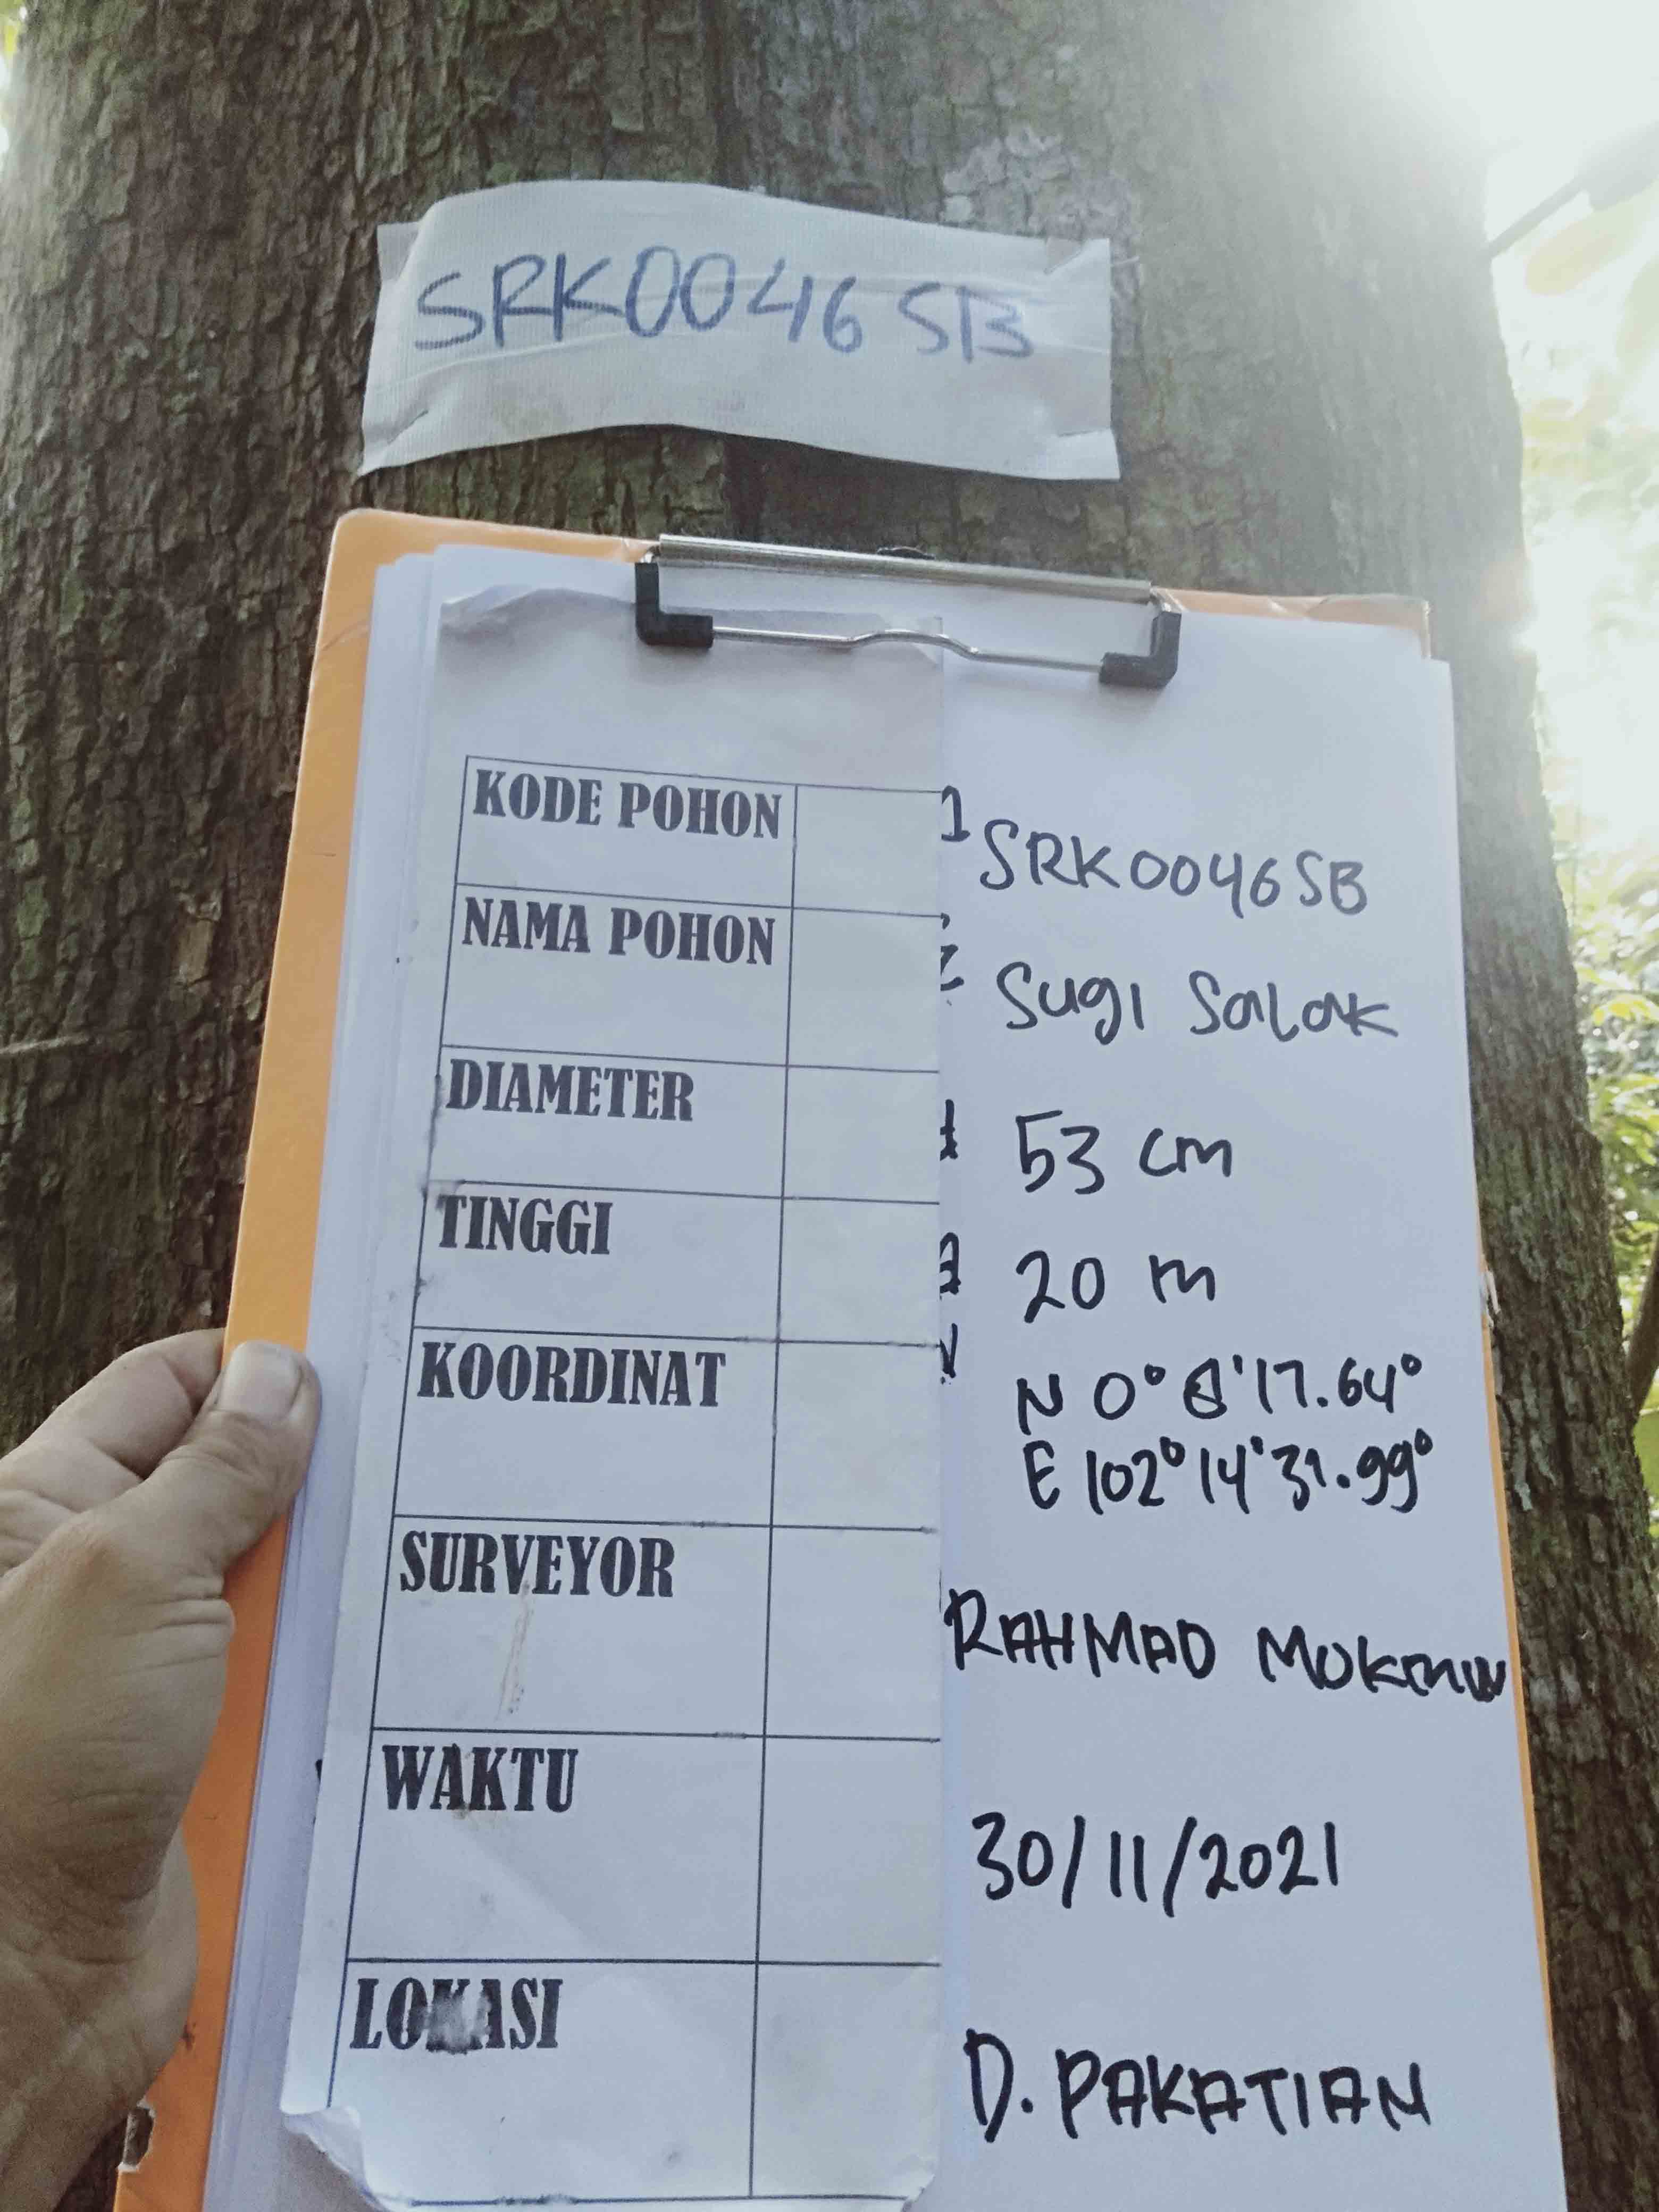 SRK0046 SB
KODE POHON SRK0046SB
NAMA POHON Sugi Salak
DIAMETER 53 cm
TINGGI 20 m
KOORDINAT N 0° 8'17.64°
E 102° 14'31.99°
SURVEYOR RAHMAD MUKMIN
WAKTU 30/11/2021
LOKASI D. PAKATIAN